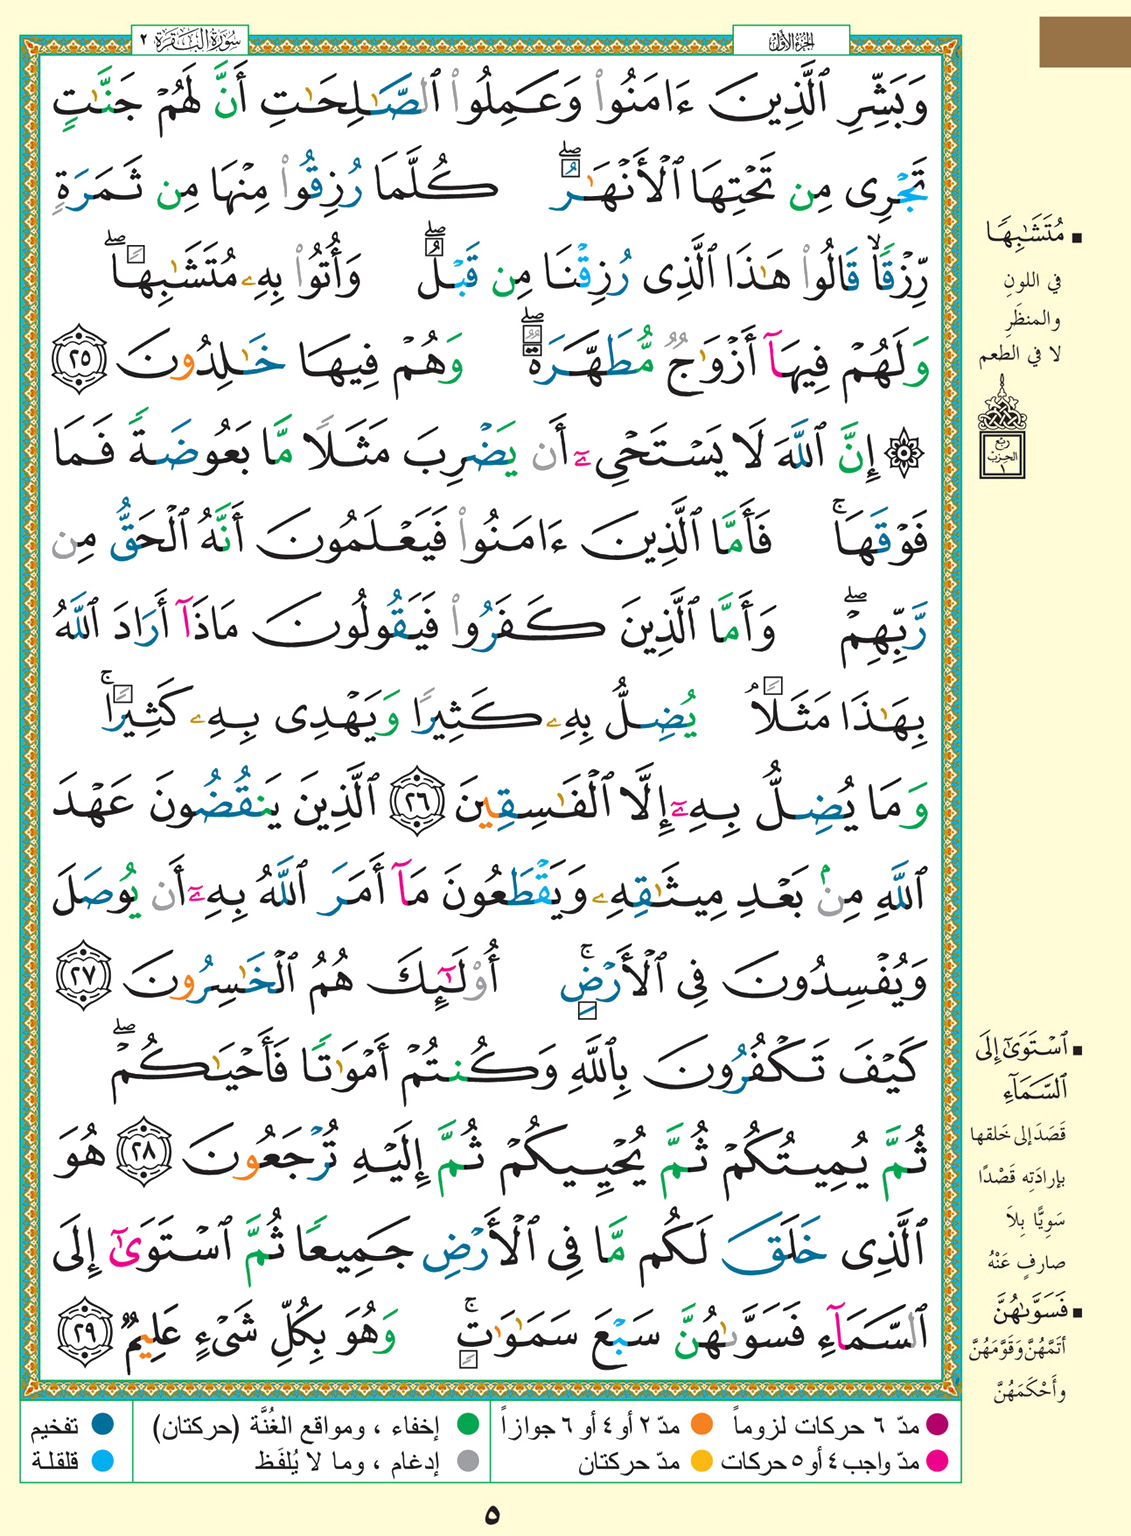 سورة البقرة ٢
الجزء الأول
وَبَشِّرِ ٱلَّذِينَ ءَامَنُوا۟ وَعَمِلُوا۟ ٱلصَّٰلِحَٰتِ أَنَّ لَهُمْ جَنَّٰتٍ
تَجْرِى مِن تَحْتِهَا ٱلْأَنْهَٰرُ ۖ كُلَّمَا رُزِقُوا۟ مِنْهَا مِن ثَمَرَةٍ
رِّزْقًا ۙ قَالُوا۟ هَٰذَا ٱلَّذِى رُزِقْنَا مِن قَبْلُ ۖ وَأُتُوا۟ بِهِۦ مُتَشَٰبِهًا ۖ
وَلَهُمْ فِيهَآ أَزْوَٰجٌ مُّطَهَّرَةٌ ۖ وَهُمْ فِيهَا خَٰلِدُونَ ٢٥
۞ إِنَّ ٱللَّهَ لَا يَسْتَحْىِۦٓ أَن يَضْرِبَ مَثَلًا مَّا بَعُوضَةً فَمَا
فَوْقَهَا ۚ فَأَمَّا ٱلَّذِينَ ءَامَنُوا۟ فَيَعْلَمُونَ أَنَّهُ ٱلْحَقُّ مِن
رَّبِّهِمْ ۖ وَأَمَّا ٱلَّذِينَ كَفَرُوا۟ فَيَقُولُونَ مَاذَآ أَرَادَ ٱللَّهُ
بِهَٰذَا مَثَلًا ۘ يُضِلُّ بِهِۦ كَثِيرًا وَيَهْدِى بِهِۦ كَثِيرًا ۚ
وَمَا يُضِلُّ بِهِۦٓ إِلَّا ٱلْفَٰسِقِينَ ٢٦ ٱلَّذِينَ يَنقُضُونَ عَهْدَ
ٱللَّهِ مِنۢ بَعْدِ مِيثَٰقِهِۦ وَيَقْطَعُونَ مَآ أَمَرَ ٱللَّهُ بِهِۦٓ أَن يُوصَلَ
وَيُفْسِدُونَ فِى ٱلْأَرْضِ ۚ أُو۟لَٰٓئِكَ هُمُ ٱلْخَٰسِرُونَ ٢٧
كَيْفَ تَكْفُرُونَ بِٱللَّهِ وَكُنتُمْ أَمْوَٰتًا فَأَحْيَٰكُمْ ۖ
ثُمَّ يُمِيتُكُمْ ثُمَّ يُحْيِيكُمْ ثُمَّ إِلَيْهِ تُرْجَعُونَ ٢٨ هُوَ
ٱلَّذِى خَلَقَ لَكُم مَّا فِى ٱلْأَرْضِ جَمِيعًا ثُمَّ ٱسْتَوَىٰٓ إِلَى
ٱلسَّمَآءِ فَسَوَّىٰهُنَّ سَبْعَ سَمَٰوَٰتٍ ۚ وَهُوَ بِكُلِّ شَىْءٍ عَلِيمٌ ٢٩
■ مُتَشَٰبِهًا
في اللونِ
والمنظَرِ
لا في الطعم
ربع
الحزب
١
■ ٱسْتَوَىٰٓ إِلَى
ٱلسَّمَآءِ
قَصَدَ إلى خَلقها
بإرادَتِه قَصْدًا
سَوِيًّا بِلاَ
صارفٍ عَنْهُ
■ فَسَوَّىٰهُنَّ
أتَمَّهُنَّ وَقَوَّمَهُنَّ
وأَحْكَمَهُنَّ
مدّ ٦ حركات لزوماً
مدّ ٢ أو ٤ أو ٦ جوازاً
إخفاء ، ومواقع الغُنَّة (حركتان)
تفخيم
مدّ واجب ٤ أو ٥ حركات
مدّ حركتان
إدغام ، وما لا يُلفَظ
قلقلة
٥